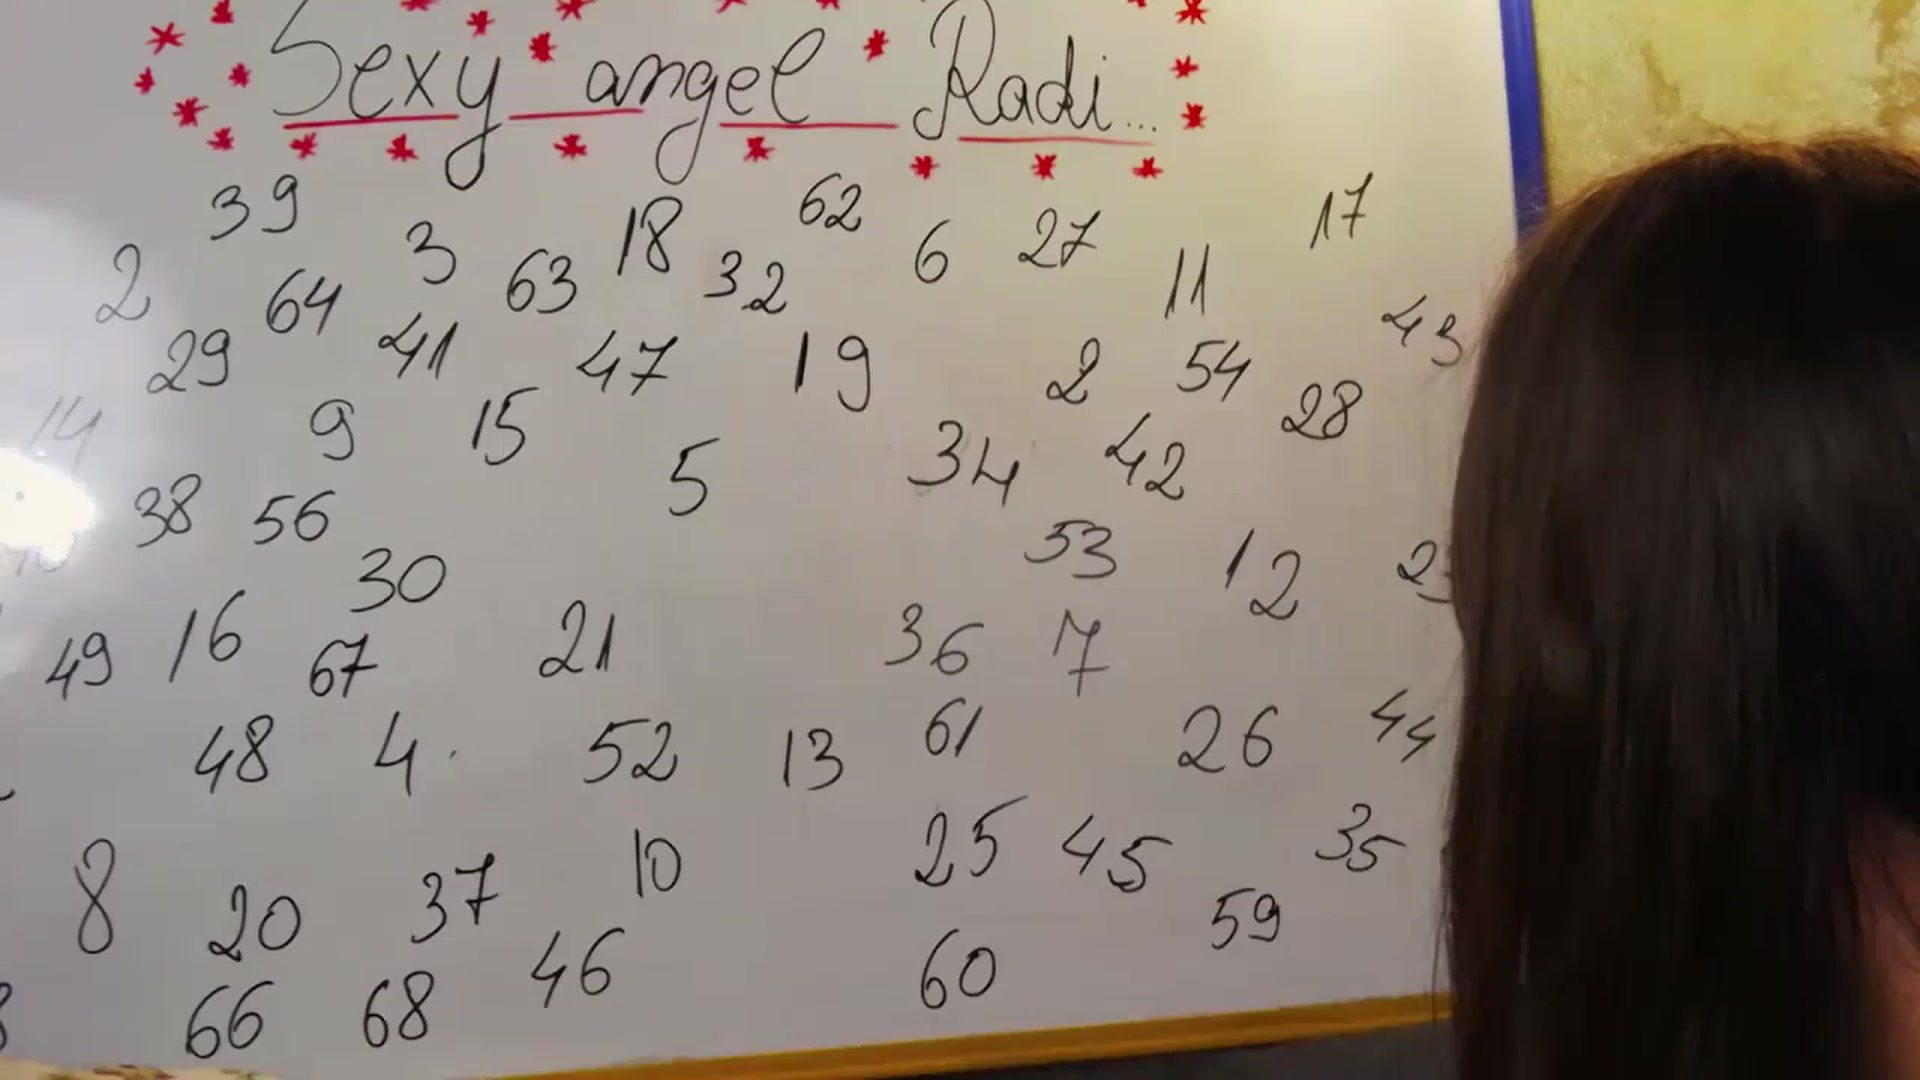 Sexy angel Radi...
39 3 18 62 6 27 17
2 64 63 32 11
29 41 47 19 2 54 43
14 9 15 5 34 42 28
38 56 53 12
30
49 16 67 21 36 7
48 4 52 13 61 26 44
8 20 37 10 25 45 35
46 60 59
66 68